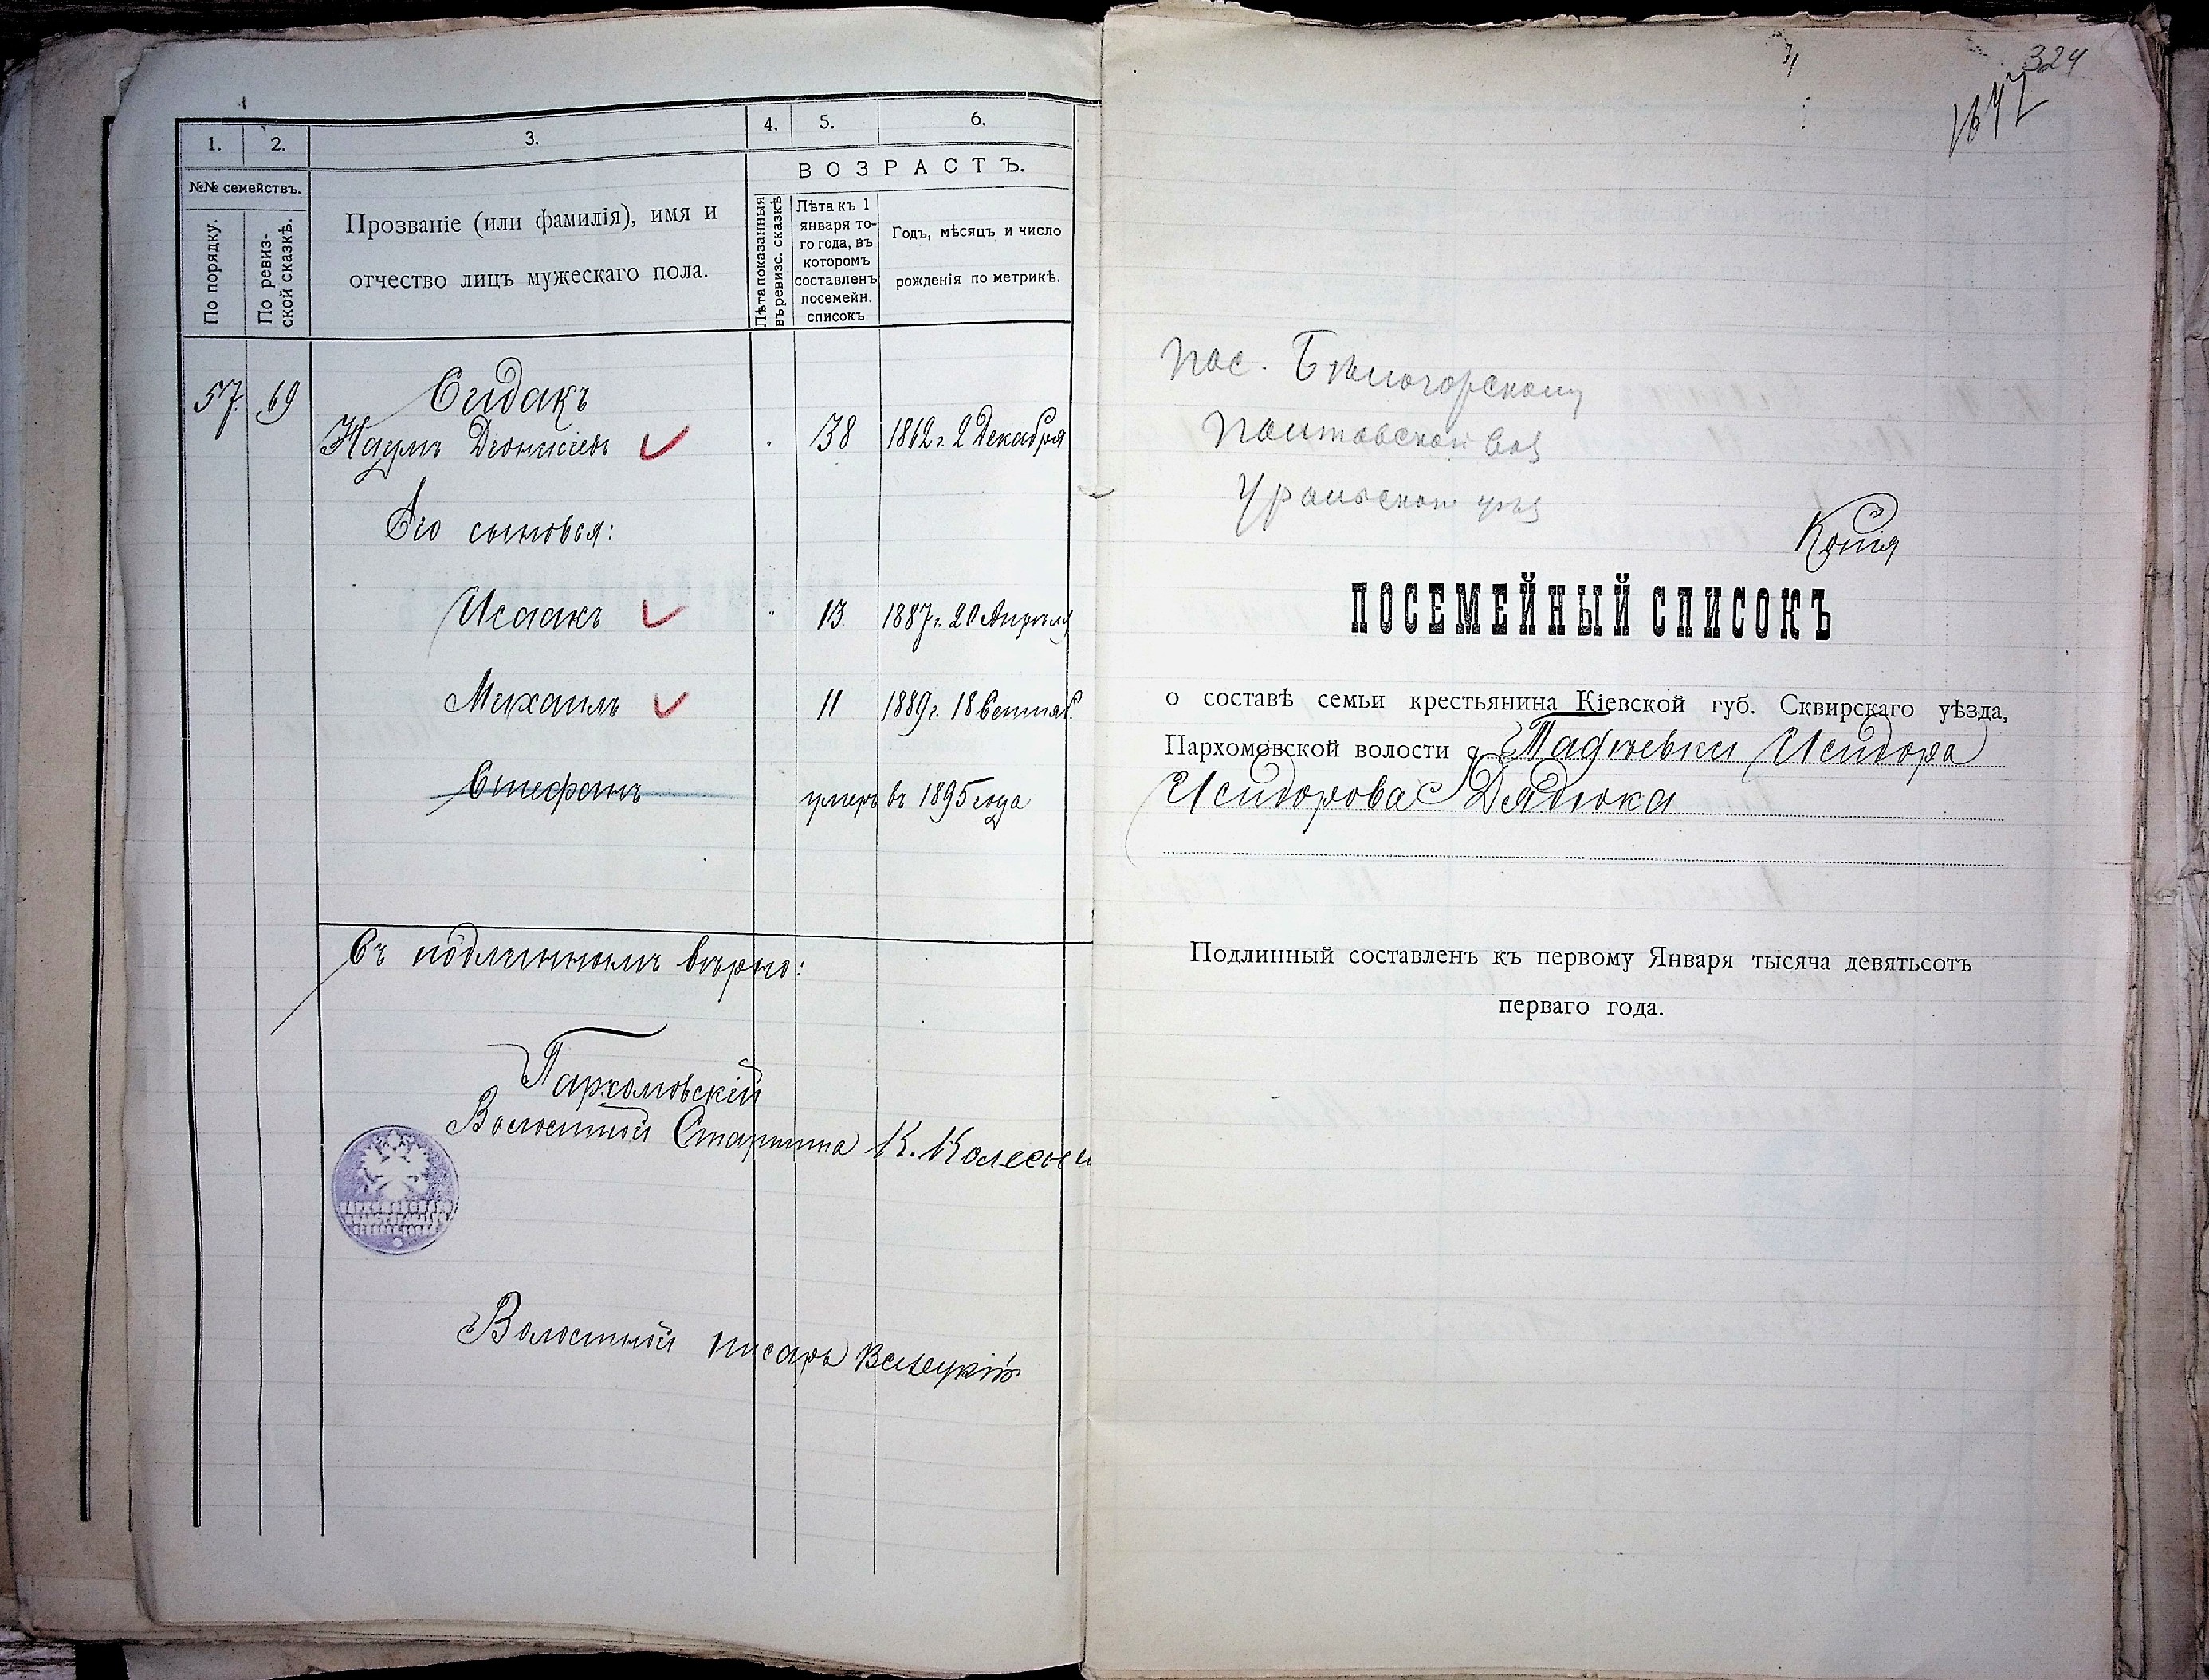 1. 2. 3. 4. 5. 6.
№№ семействъ.
По порядку.
По ревизской сказкѣ.
Прозваніе (или фамилія), имя и
отчество лицъ мужескаго пола.
ВОЗРАСТЪ.
Лѣта показанныя
въ ревизс. сказкѣ
Лѣта къ 1
января то-
го года, въ
которомъ
составленъ
посемейн.
списокъ
Годъ, мѣсяцъ и число
рожденія по метрикѣ.
57. 69 Сидакъ
Наумъ Діонисіевъ 38 1862 г. 2 Декабря
Его сыновья:
Исаакъ " 13 1887 г. 20 Апрѣля
Михаилъ 11 1889 г. 18 Сентяб.
Стефанъ умеръ въ 1895 года
Съ подлиннымъ вѣрно:
Пархомовскій
Волостной Старшина К. Колесни
Волостной писарь
324
пос. Бѣлогорскому
Полтавской вол
Уральскаго уѣз
Копія
ПОСЕМЕЙНЫЙ СПИСОКЪ
о составѣ семьи крестьянина Кіевской губ. Сквирскаго уѣзда,
Пархомовской волости с. Тадіевки Исидора
Исидорова Дядюка
Подлинный составленъ къ первому Января тысяча девятьсотъ
перваго года.